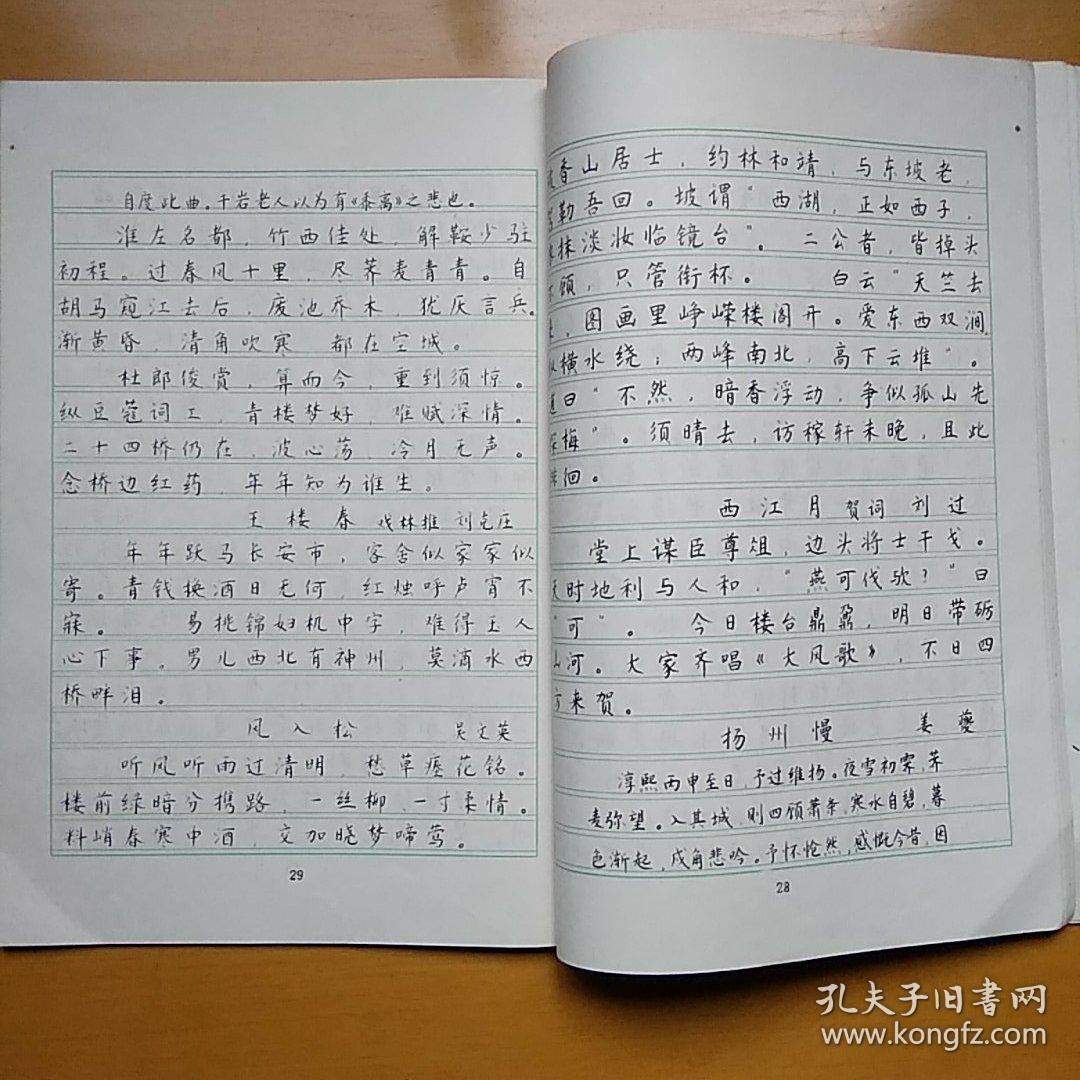 香山居士，约林和靖，与东坡老，
勒吾回。坡谓“西湖，正如西子，
抹淡妆临镜台”。二公者，皆掉头
顾，只管衔杯。 白云“天竺去
，图画里峥嵘楼阁开。爱东西双涧，
横水绕；两峰南北，高下云堆”。
曰“不然，暗香浮动，争似孤山先
探梅”。须晴去，访稼轩未晚，且此
徘徊。
西江月 贺词 刘过
堂上谋臣尊俎，边头将士干戈。
天时地利与人和，“燕可伐欤？”曰
“可”。 今日楼台鼎鼐，明日带砺
山河。大家齐唱《大风歌》，不日四
方来贺。
扬州慢 姜夔
淳熙丙申至日，予过维扬。夜雪初霁，荠
麦弥望。入其城，则四顾萧条，寒水自碧，暮
色渐起，戍角悲吟。予怀怆然，感慨今昔，因
28
自度此曲。千岩老人以为有《黍离》之悲也。
淮左名都，竹西佳处，解鞍少驻
初程。过春风十里，尽荠麦青青。自
胡马窥江去后，废池乔木，犹厌言兵。
渐黄昏，清角吹寒 都在空城。
杜郎俊赏，算而今，重到须惊。
纵豆蔻词工，青楼梦好，难赋深情。
二十四桥仍在，波心荡，冷月无声。
念桥边红药，年年知为谁生。
玉楼春 戏林推 刘克庄
年年跃马长安市，客舍似家家似
寄。青钱换酒日无何，红烛呼卢宵不
寐。 易挑锦妇机中字，难得玉人
心下事。男儿西北有神州，莫滴水西
桥畔泪。
风入松 吴文英
听风听雨过清明，愁草瘗花铭。
楼前绿暗分携路，一丝柳，一寸柔情。
料峭春寒中酒，交加晓梦啼莺。
29
孔夫子旧书网
www.kongfz.com